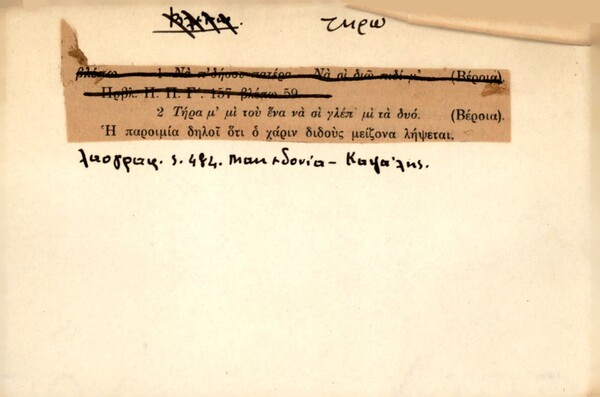 τηρῶ
βλέπω 1 Νὰ π'δήσου πατέρα Νὰ σὶ διῶ πιδί μ' (Βέροια)
Πρβλ. Π. Π. Γ'. 157 βλέπω 59
2 Τήρα μ' μὶ τοὺ ἕνα νὰ σὶ γλέπ' μὶ τὰ δυό. (Βέροια).
Ἡ παροιμία δηλοῖ ὅτι ὁ χάριν διδοὺς μείζονα λήψεται.
Λαογραφ. ς. 484. Μακεδονία - Καψάλης.